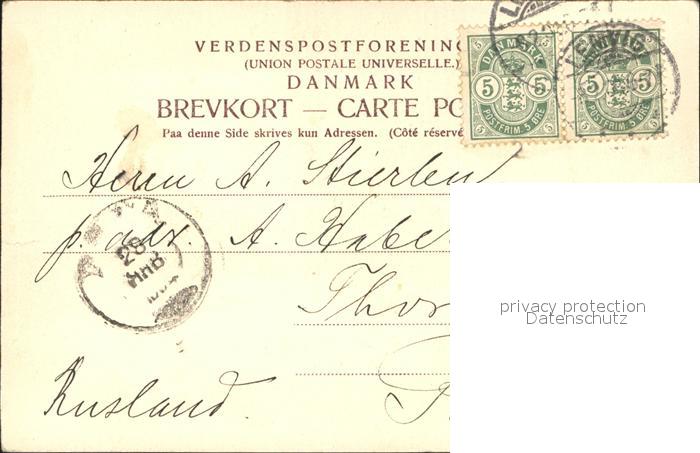 VERDENSPOSTFORENING
(UNION POSTALE UNIVERSELLE.)
DANMARK
BREVKORT — CARTE PO
Paa denne Side skrives kun Adressen. (Côté réservé
DANMARK
5 5
POSTFRIM. 5 ØRE
DANMARK
5 5
POSTFRIM. 5 ØRE
LEMVIG
Herrn A. Stierlen
p. adr. A. Habe
Thor
28
Rusland.
privacy protection
Datenschutz